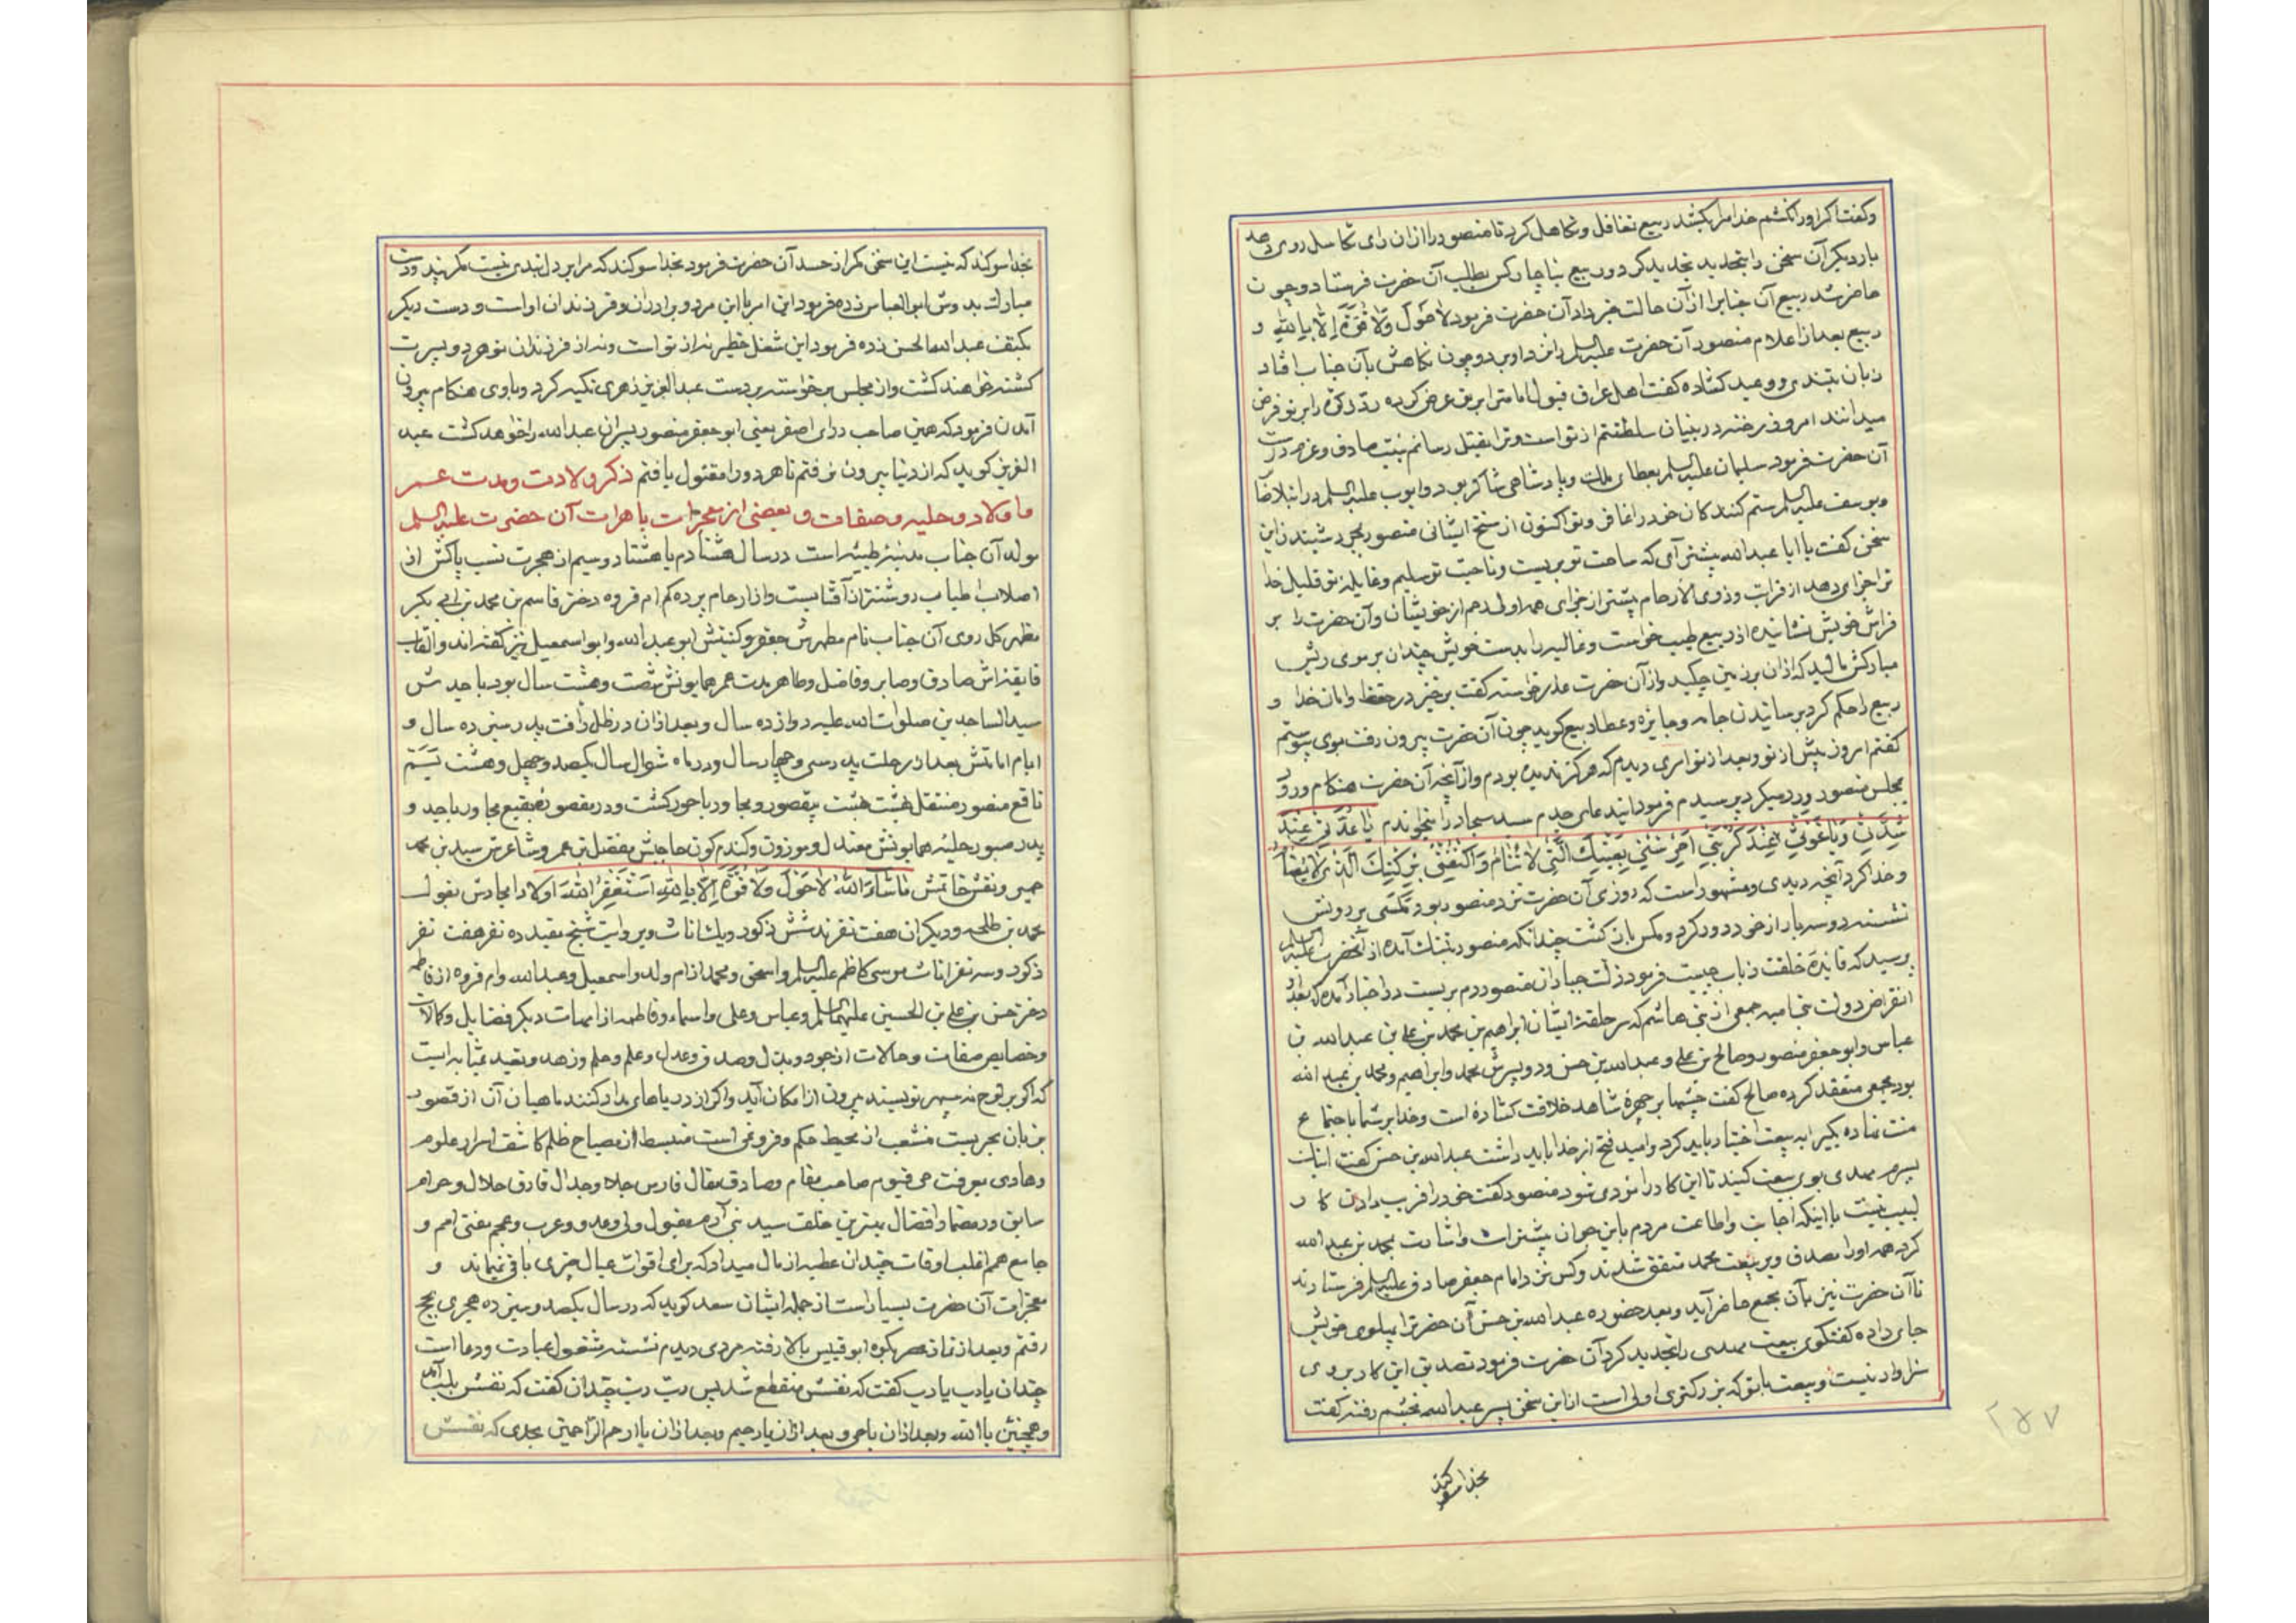 وکفت اکر او را نکشم خدا مرا بکشد ربیع تغافل و تکاهل کرد تا منصور را ازان رای تکاسل روی دهد
بار دیکر آن سخن را بتجدید تجدید کرد و ربیع بناچار کس بطلب آن حضرت فرستاد و چون
حاضر شد ربیع آن جناب را از آن حالت خبر داد آن حضرت فرمود لا حَولَ وَلا قُوَّةَ اِلّا بِاللهِ و
ربیع بعد از اعلام منصور آن حضرت علیه السلم را نزد او برد و چون نکاهش بآن جناب افتاد
زبان بتندی و وعید کشاده کفت اهل عراق قبول امامت ترا بر تو عرض کرده ردّ زکوة را بر تو فرض
میدانند امروز رخنه در بنیان سلطنتم از تو است و ترا بقتل رسانم بنیت صادق و عزم درست
آن حضرت فرمود سلیمان علیه السلم بعطای ملک و پادشاهی شاکر بود و ایوب علیه السلم در ابتلا صابر
و یوسف علیه السلم ستم کنندکان خود را غافر و تو اکنون از سنخ ایشانی منصور بمجرد شنیدن این
سخن کفت یا ابا عبدالله پیشتر آی که ساحت تو بریست و ناحیت تو سلیم و غایله تو قلیل خدا
ترا جزای دهد از قرابت و ذوی الارحام بیشتر از جزای همه اولی رحم از خویشان و آن حضرت را بر
فراش خویش نشانیده از ربیع طیب خواست و غالیه را بدست خویش چندان بر موی ریش
مبارکش مالید که ازان بر زمین چکید و از آن حضرت عذر خواسته کفت برخیز در حفظ و امان خدا و
ربیع را حکم کرد برسانیدن جامه و جایزه و عطا ربیع کوید چون آن حضرت بیرون رفت بوی پیوستم
کفتم امروز پیش از تو و بعد از تو امری دیدم که هرکز ندیده بودم و از آنچه آن حضرت هنکام ورود
مجلس منصور ورد میکرد پرسیدم فرمود اینه دعای جدم سید سجاد را بخواندم یا عُدَّتی عِندَ
شِدَّتی وَیا غَوثی عِندَ کُربَتی اُحرُسنی بِعَینِکَ الَّتی لا تَنامُ وَاکنُفنی بِرُکنِکَ الَّذی لا یُضامُ
و خدا کرد آنچه دیدی و مشهور است که روزی آن حضرت نزد منصور بود مکسی بر رویش
نشسته دو سه بار از خود دور کرد و مکس باز کشت چندانکه منصور بتنک آمده از آنحضرت علیه السلم
پرسید که فایدۀ خلقت ذباب چیست فرمود ذلّت جباران منصور دم بربست در اخبار آمده که بعد از
انقراض دولت بنی امیه جمعی از بنی هاشم که سرحلقۀ ایشان ابراهیم بن محمد بن علی بن عبدالله بن
عباس و ابو جعفر منصور و صالح بن علی و عبدالله بن حسن و دو پسرش محمد و ابراهیم و محمد بن عبد الله
بود مجمعی منعقد کرده صالح کفت چشمها بر چهرۀ شاهد خلافت کشاده است و خدا بر شما باجتماع
منت نهاده یکی را به بیعت اختیار باید کرد و امید فتح از خدا باید داشت عبدالله بن حسن کفت اینک
پسرم مهدی بوی بیعت کنید تا این کار را مزدی شود منصور کفت خود را فریب دادن کار
لبیب نیست با اینکه اجابت و اطاعت مردم باین جوان بیشتر است و اشارت بمحمد بن عبدالله
کرد همه او را مصدق و بر بیعت محمد متفق شدند و کس نزد امام جعفر صادق علیه السلم فرستادند
تا آن حضرت نیز بآن مجمع حاضر آید و بعد حضوره عبدالله بن حسن آن حضرت را بپهلوی خویش
جای داده کفتکوی بیعت مهدی را تجدید کرد آن حضرت فرمود تصدیق این کار بروی
سزاوار نیست و بیعت با تو که بزرکتری اولی است از این سخن پسر عبدالله بخشم رفته کفت
بخدا سوکند
۲۵۷
بخدا سوکند که نیست این سخن مکر از حسد آن حضرت فرمود بخدا سوکند که مرا بر دل تبدی نیست مکر نپد و دست
مبارک بدوش ابو العباس زده فرمود این امر با این مرد و برادران و فرزندان او است و دست دیکر
بکتف عبدالله الحسن زده فرمود این شغل خطیر نه از تو است و نه از فرزندان تو هر دو پسرت
کشته خواهند کشت و از مجلس برخواسته بر دست عبدالعزیز زهری تکیه کرد و با وی هنکام بیرون
آمدن فرمود که همین صاحب ردای اصفر یعنی ابو جعفر منصور پسران عبدالله را خواهد کشت عبد
العزیز کوید که از دنیا بیرون نرفتم تا هر دو را مقتول یافتم ذکر ولادت و مدت عمر
و اولاد و حلیه و صفات و بعضی از معجزات باهرات آن حضرت علیه السلم
مولد آن جناب مدینۀ طیبه است در سال هشتادم یا هشتاد و سیم از هجرت نسب پاکش از
اصلاب اطیاب روشنتر از آفتابست و از ارحام پرده کم ام فروه دختر قاسم بن محمد بن ابی بکر
مظهر کل روی آن جناب نام مطهرش جعفر و کنیتش ابو عبدالله و ابو اسمعیل نیز کفته اند و القاب
فایقه اش صادق و صابر و فاضل و طاهر مدت عمر همایونش شصت و هشت سال بود با جدش
سید الساجدین صلوات الله علیه دوازده سال و بعد ازان در ظل رافت پدر سنی ده سال و
ایام امامتش بعد از رحلت پدر سی و چهار سال و در ماه شوال سال یکصد و چهل و هشت بسَمّ
ناقع منصور منتقل هشت بهشت بقصور و مجاور با حور کشت و در مقصورۀ بقیع مجاور با جد و
پدر صبور حلیه همایونش معتدل و موزون و کندم کون حاجبش مفضل بن عمر و شاعرش سید بن محمد
حمیری و نقش خاتمش ماشآءَ اللهُ لا حَولَ وَلا قُوَّةَ اِلّا بِاللهِ اَستَغفِرُ اللهَ اولاد امجادش بقول
محمد بن طلحه و دیکران هفت نفرند شش ذکور و یک اناث و بروایت شیخ مفید ده نفر هفت نفر
ذکور و سه نفر اناث موسی کاظم علیه السلم و اسحق و محمد از ام ولد و اسمعیل و عبدالله و ام فروه از فاطمه
دختر حسن بن علی بن الحسین علیهما السلم و عباس و علی و اسماء و فاطمه از امهات دیکر فضایل و کمالات
و خصایص صفات و حالات از جود و بذل و صدق و عدل و علم و حلم و زهد و تقید بمثابه ایست
که اکر بر لوح نه سپهر نویسند بیرون از امکان آید و اکر از دریاهای مداد کنند ماهیان آن از قصور
بزبان بحریست منشعب از محیط حکم و فروغی است منبسط از مصباح ظلم کاشف اسرار علوم
و هادی بمعرفت حی قیوم صاحب مقام و صادق مقال فارس جلاد و جدال فارق حلال و حرام
سابق در مضمار افضال بهترین خلقت سید بنی آدم مقبول ولی و عدو و عرب و عجم مفتی امم و
جامع همم اغلب اوقات چندان عطیه از مال میداد که برای اقوات عیال چیزی باقی نمیماند و
معجزات آن حضرت بسیار است از جمله ایشان سعد کوید که در سال یکصد و سیزده هجری بحج
رفتم و بعد از نماز عصر بکوه ابو قبیس بالا رفته مردی دیدم نشسته مشغول عبادت و دعا است
چندان یا رب یا رب کفت که نفسش منقطع شد پس ربّ ربّ چندان کفت که نفسش بلب آمد
و همچنین یا الله و بعد ازان یا حی و بعد ازان یا رحیم و بعد ازان یا ارحم الراحمین بحدی که نفسش